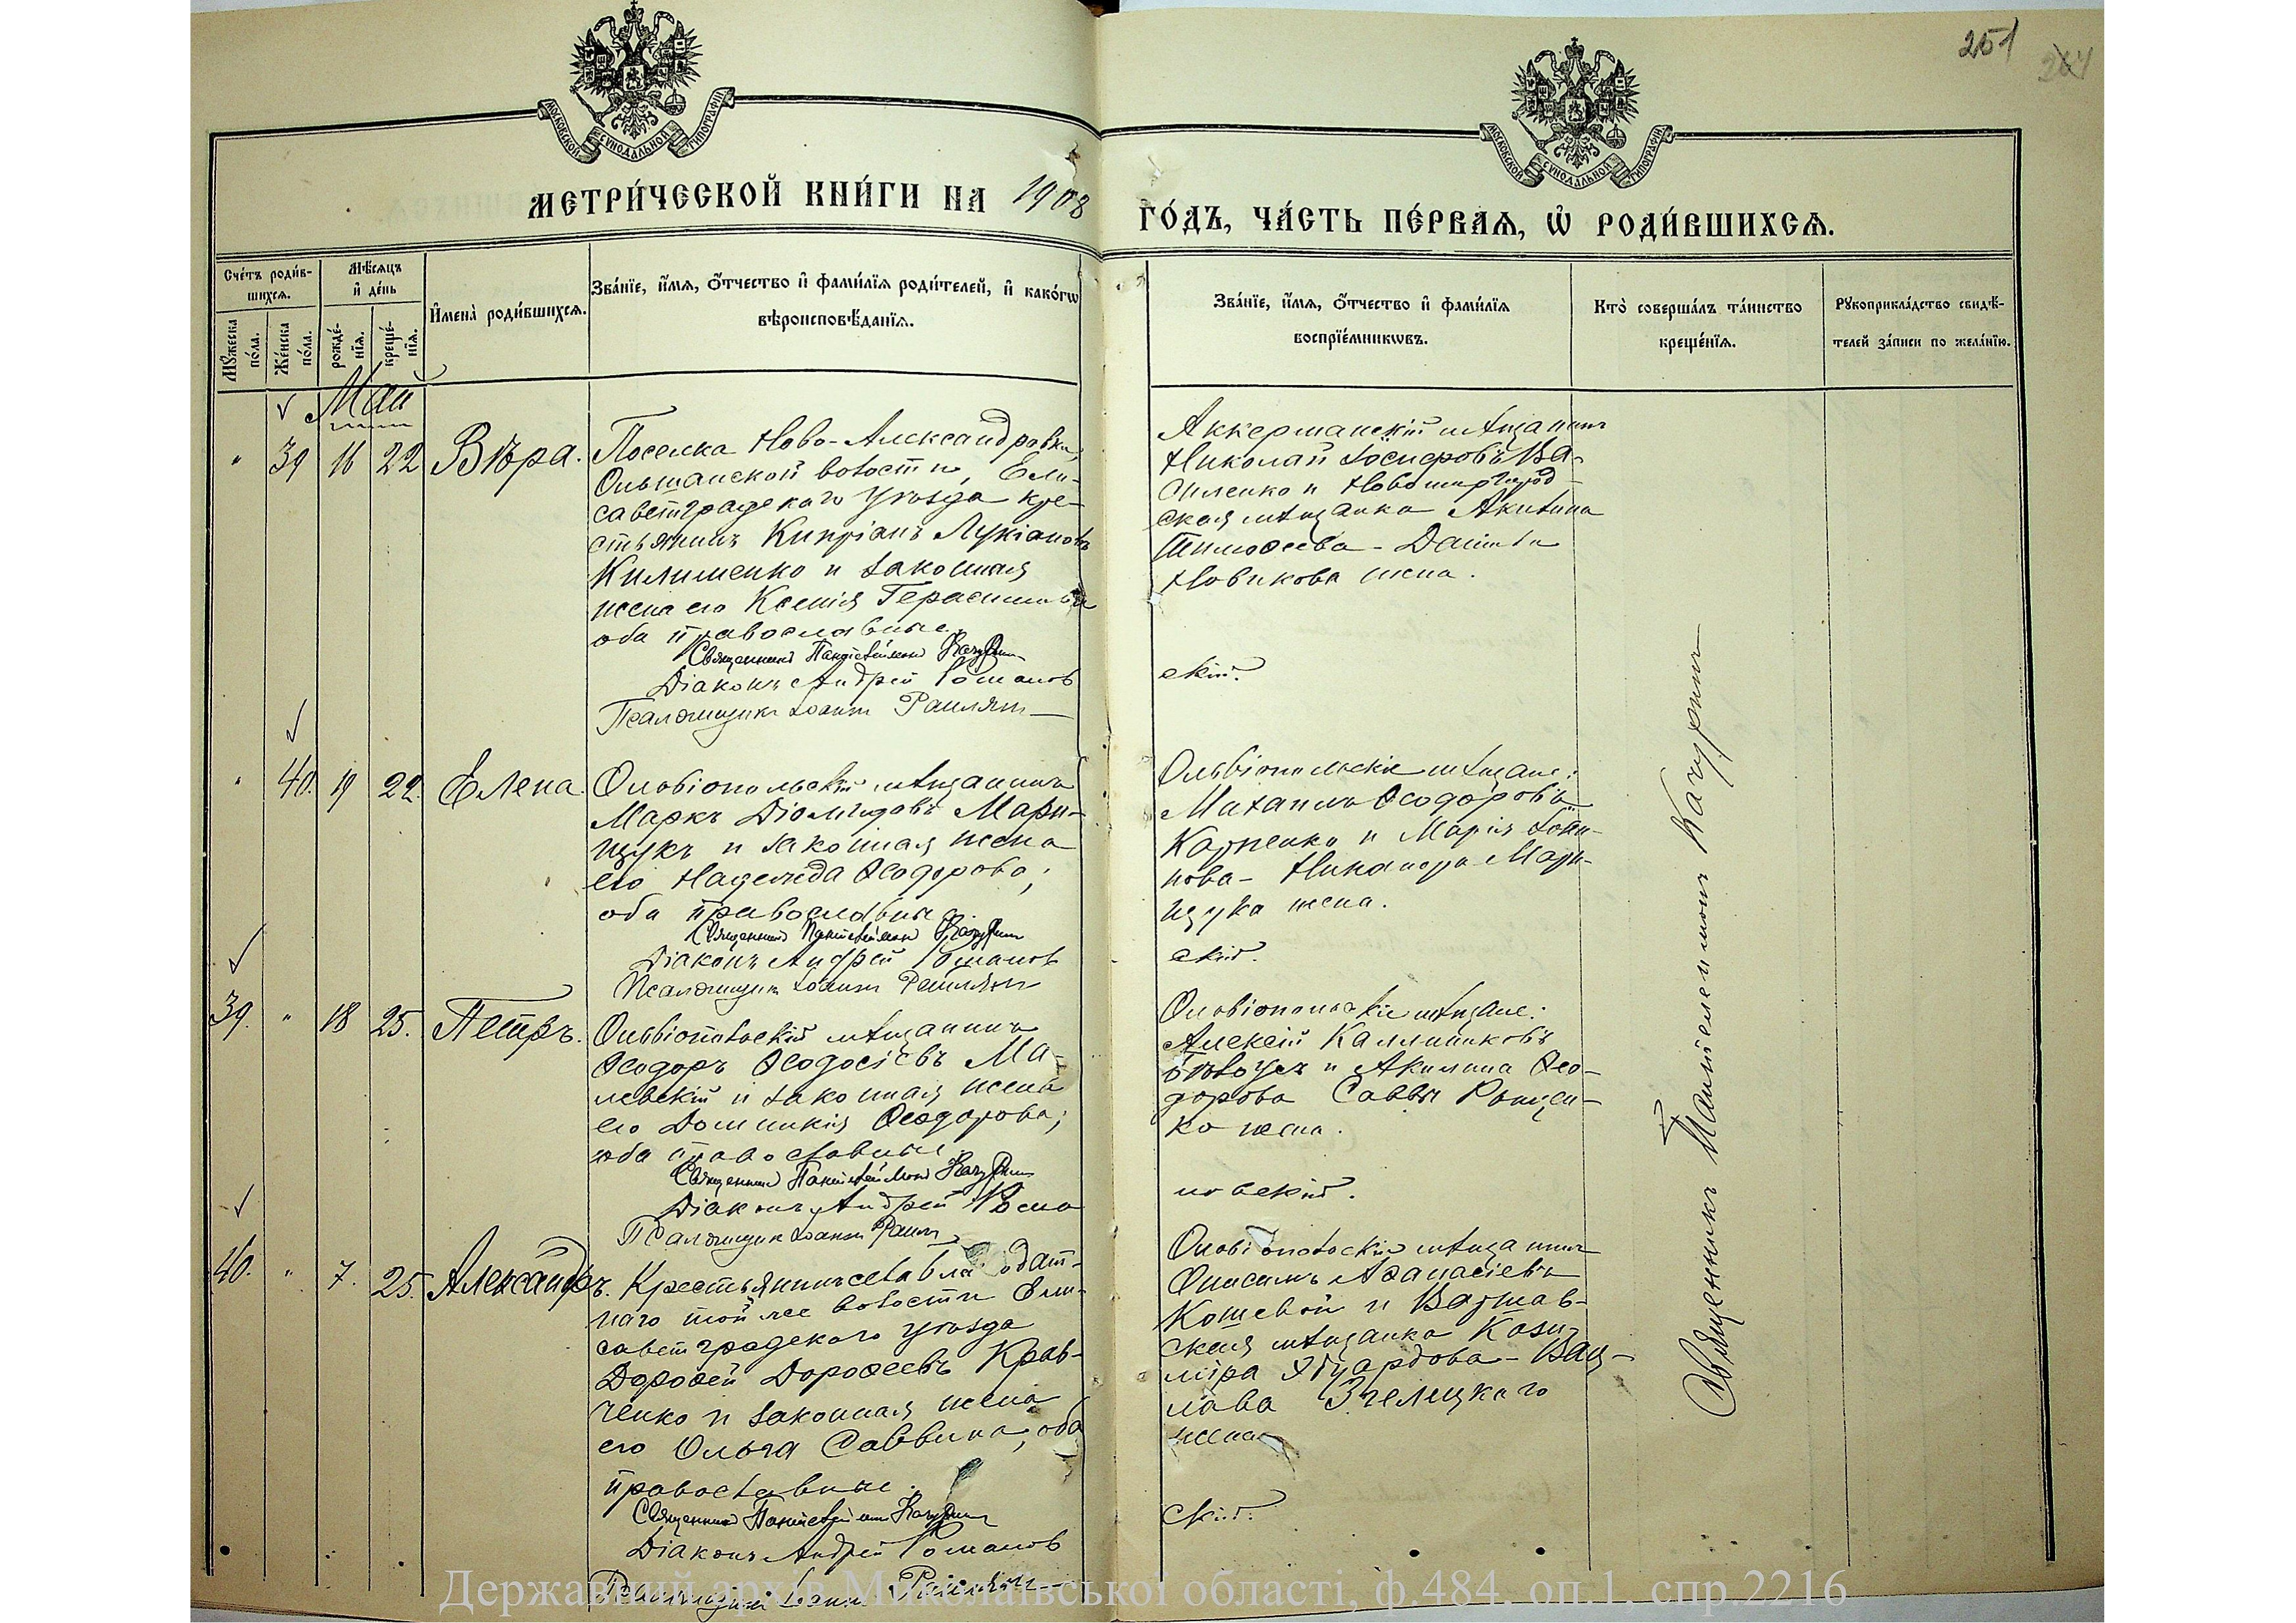 251
МОСКОВСКОЙ СУНОДАЛЬНОЙ ТИПОГРАФІИ
МОСКОВСКОЙ СУНОДАЛЬНОЙ ТИПОГРАФІИ
МЕТРИ́ЧЕСКОЙ КНИ́ГИ НА 1908
ГО́ДЪ, ЧА́СТЬ ПЕ́РВАѦ, Ѡ҆ РОДИ́ВШИХСѦ.
Сче́тъ роди́в-
шихсѧ.
Мꙋ́жеска по́ла.
Же́нска по́ла.
Мѣ́сѧцъ и҆ де́нь
рожде́-нїѧ.
креще́-нїѧ.
И҆мена̀ роди́вшихсѧ.
Зва́нїе, и҆́мѧ, ѻ҆́тчество и҆ фами́лїѧ роди́телей, и҆ како́гѡ
вѣроисповѣ́данїѧ.
Зва́нїе, и҆́мѧ, ѻ҆́тчество и҆ фами́лїѧ
воспрїе́мникѡвъ.
Кто̀ соверша́лъ та́инство
креще́нїѧ.
Рꙋкоприкла́дство свидѣ́-
телей за́писи по жела́нїю.
Май
" 39 16 22 Вѣра.
Поселка Ново-Александровки,
Ольшанской волости, Ели-
саветградскаго уѣзда кре-
стьянинъ Кипріанъ Лукіановъ
Килименко и законная
жена его Ксенія Герасимова
оба православные.
Священникъ Пантелеймонъ
Діаконъ Андрей Романов
Псаломщикъ Іоаннъ
Аккерманскій мѣщанинъ
Николай Іосифовъ Ва-
силенко и Новомиргород-
ская мѣщанка Акилина
Тимоѳеева - Даніила
Новикова жена.
скій.
" 40. 19 22. Елена.
Ольвіопольскій мѣщанинъ
Маркъ Діомидовъ Мари-
щукъ и законная жена
его Надежда Ѳеодорова;
оба православные.
Священникъ Пантелеймонъ
Діаконъ Андрей Романов
Псаломщикъ Іоаннъ
Ольвіопольскіе мѣщане:
Михаилъ Ѳеодоровъ
Карпенко и Марія
нова - Никанора Мари-
щука жена.
скій.
39. " 18 25. Петръ.
Ольвіопольскій мѣщанинъ
Ѳеодоръ Ѳеодосіевъ Ма-
левскій и законная жена
его Домникія Ѳеодорова;
оба православные.
Священникъ Пантелеймонъ
Діаконъ Андрей Рома
Псаломщикъ Іоаннъ
Ольвіопольскіе мѣщане:
Алексѣй Каллиниковъ
и Акилина Ѳео-
дорова Саввы
ко жена.
новскій.
40. " 7. 25. Александръ.
Крестьянинъ села Благодат-
наго той же волости Ели-
саветградскаго уѣзда
Дороѳей Дороѳеевъ Крав-
ченко и законная жена
его Ольга Саввина, оба
православные.
Священникъ Пантелеймонъ
Діаконъ Андрей Романов
Псаломщикъ Іоаннъ
Ольвіопольскій мѣщанинъ
Онисимъ Аѳанасіевъ
Кошевой и Варшав-
ская мѣщанка Кази-
міра Эдуардова - Вац-
лава Згелицкаго
жена
скій.
Священникъ Пантелеймонъ
Державний архів Миколаївської області, ф.484, оп.1, спр.2216